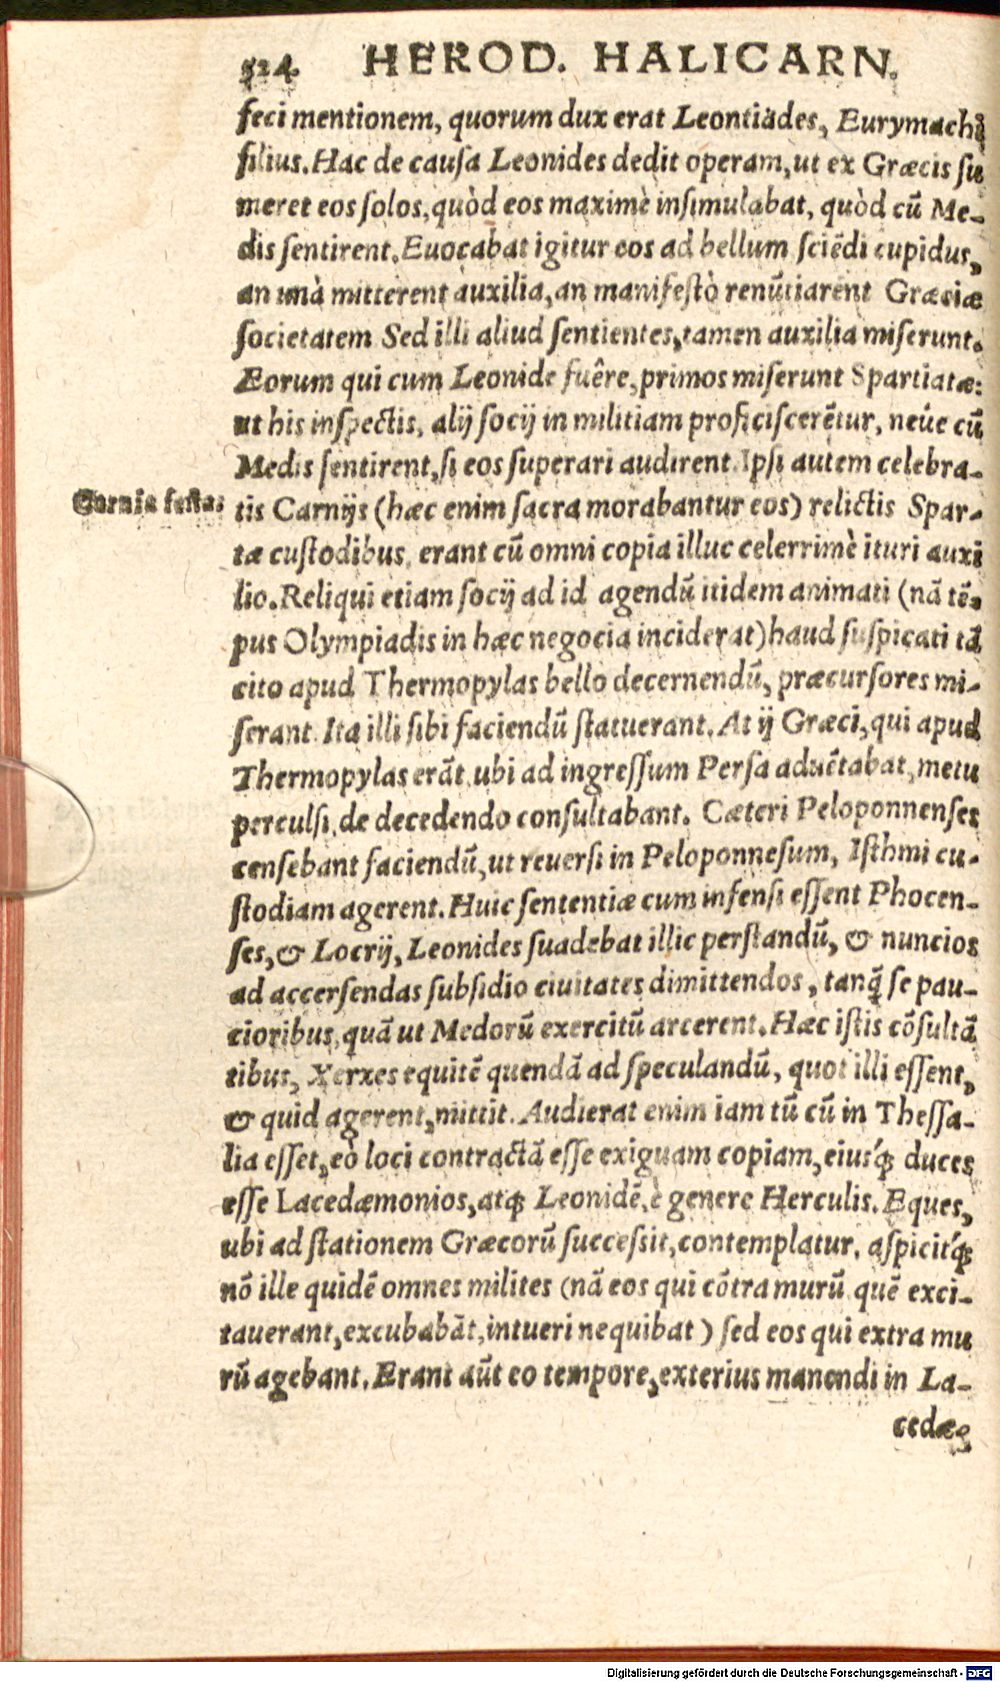 524 HEROD. HALICARN.
feci mentionem, quorum dux erat Leontiades, Eurymachi
filius. Hac de cauſa Leonides dedit operam, ut ex Græcis ſu
meret eos ſolos, quòd eos maximè inſimulabat, quòd cū Me-
dis ſentirent. Euocabat igitur eos ad bellum ſciēdi cupidus,
an unà mitterent auxilia, an manifeſtò renūtiarent Græciæ
ſocietatem Sed illi aliud ſentientes, tamen auxilia miſerunt.
Eorum qui cum Leonide fuêre, primos miſerunt Spartiatæ:
ut his inſpectis, alij ſocij in militiam proficiſcerētur, neúe cū
Medis ſentirent, ſi eos ſuperari audirent. Ipſi autem celebra-
Carnia feſta:
tis Carnijs (hæc enim ſacra morabantur eos) relictis Spar-
tæ cuſtodibus, erant cū omni copia illuc celerrimè ituri auxi
lio. Reliqui etiam ſocij ad id agendū itidem animati (nā tē-
pus Olympiadis in hæc negocia inciderat) haud ſuſpicati tā
cito apud Thermopylas bello decernendū, præcurſores mi-
ſerant. Ita illi ſibi faciendū ſtatuerant. At ij Græci, qui apud
Thermopylas erāt, ubi ad ingreſſum Perſa aduētabat, metu
perculſi, de decedendo conſultabant. Cæteri Peloponnenſes
cenſebant faciendū, ut reuerſi in Peloponneſum, Iſthmi cu-
ſtodiam agerent. Huic ſententiæ cum infenſi eſſent Phocen-
ſes, & Locrij, Leonides ſuadebat illic perſtandū, & nuncios
ad accerſendas ſubſidio ciuitates dimittendos, tanq̄ ſe pau-
cioribus, quā ut Medorū exercitū arcerent. Hæc iſtis cōſultā
tibus, Xerxes equitē quendā ad ſpeculandū, quot illi eſſent,
& quid agerent, mittit. Audierat enim iam tū cū in Theſſa-
lia eſſet, eò loci contractā eſſe exiguam copiam, eiusq́; duces
eſſe Lacedæmonios, atq; Leonidē, è genere Herculis. Eques,
ubi ad ſtationem Græcorū ſucceſsit, contemplatur, aſpicitq́;
nō ille quidē omnes milites (nā eos qui cōtra murū quē exci-
tauerant, excubabāt, intueri nequibat) ſed eos qui extra mu
rū agebant. Erant aūt eo tempore, exterius manendi in La-
cedæ-
Digitalisierung gefördert durch die Deutsche Forschungsgemeinschaft - DFG